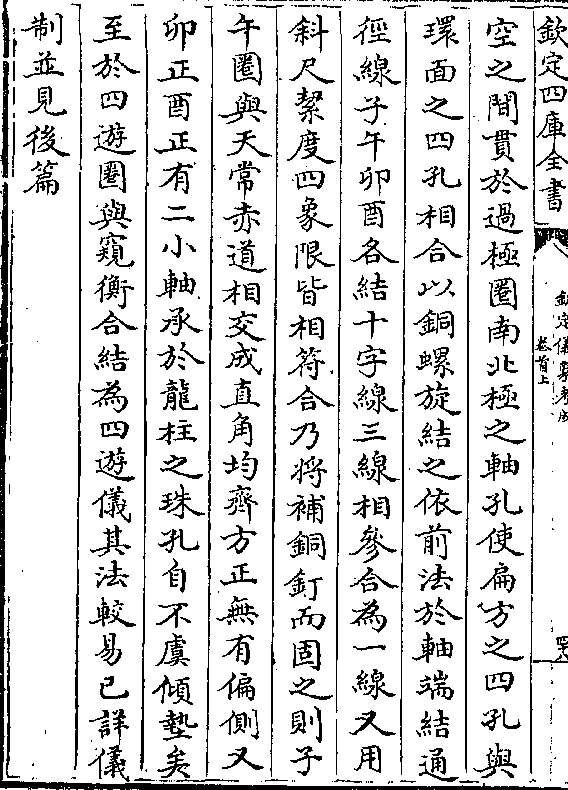 欽定四庫全書
欽定儀象考成
卷首上
空之間貫於過極圈南北極之軸孔使扁方之四孔與
環面之四孔相合以銅螺旋結之依前法於軸端結通
徑線子午卯酉各結十字線三線相參合為一線又用
斜尺絜度四象限皆相符合乃將補銅釘而固之則子
午圈與天常赤道相交成直角均齊方正無有偏側又
卯正酉正有二小軸承於龍柱之珠孔自不虞傾墊矣
至於四遊圈與窺衡合結為四遊儀其法較易已詳儀
制並見後篇